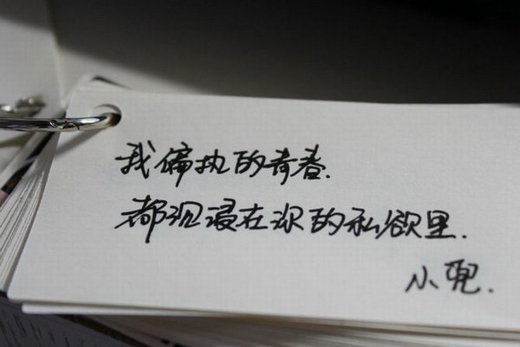 我偏执的青春.
都沉浸在你的私欲里.
小兜.